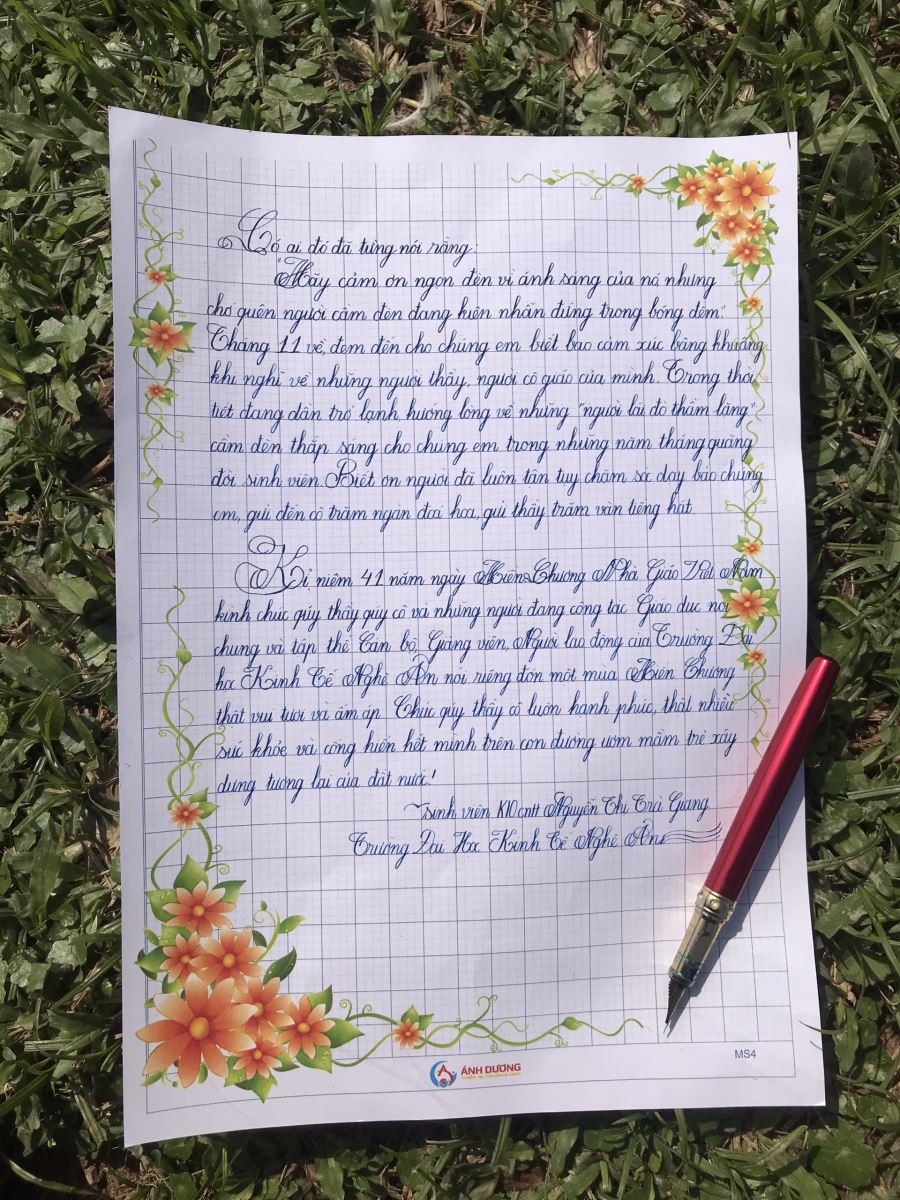 Có ai đó đã từng nói rằng:
"Hãy cảm ơn ngọn đèn vì ánh sáng của nó, nhưng
chớ quên người cầm đèn đang kiên nhẫn đứng trong bóng đêm."
Tháng 11 về, đem đến cho chúng em biết bao cảm xúc bâng khuâng
khi nghĩ về những người thầy, người cô giáo của mình. Trong thời
tiết đang dần trở lạnh, hướng lòng về những "người lái đò thầm lặng"
cầm đèn thắp sáng cho chúng em trong những năm tháng quãng
đời sinh viên. Biết ơn người đã luôn tận tụy chăm sóc dạy bảo chúng
em, gửi đến cô trăm ngàn đoá hoa, gửi thầy trăm vàn tiếng hát
Kỉ niệm 41 năm ngày Hiến Chương Nhà Giáo Việt Nam
kính chúc qúy thầy qúy cô và những người đang công tác Giáo dục nói
chung và tập thể Cán bộ, Giảng viên, Người lao động của Trường Đại
học Kinh Tế Nghệ An nói riêng đón một mùa Hiến Chương
thật vui tươi và ấm áp. Chúc qúy thầy cô luôn hạnh phúc, thật nhiều
sức khỏe và cống hiến hết mình trên con đường ươm mầm trẻ xây
dựng tương lai của đất nước!
Sinh viên K10.cntt Nguyễn Thị Trà Giang
Trường Đại Học Kinh Tế Nghệ An
MS4
ÁNH DƯƠNG